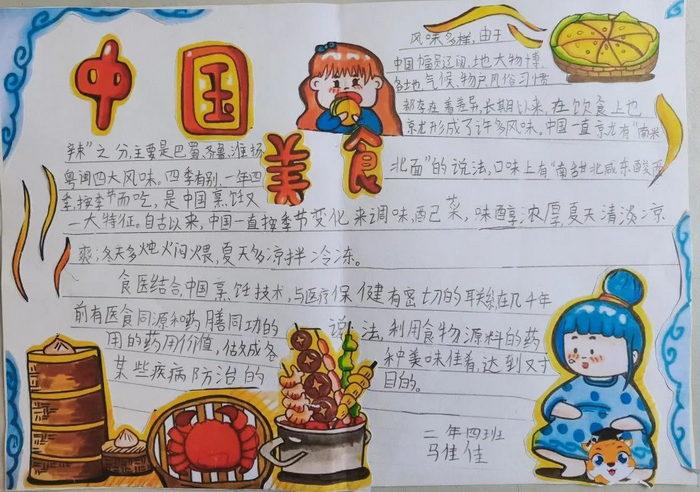 中国
美食
风味多样,由于
中国幅员辽阔,地大物博,
各地气候、物产、风俗习惯
都存在着差异,长期以来,在饮食上也
就形成了许多风味。中国一直就有"南米
北面"的说法,口味上有"南甜北咸东酸西
辣"之分,主要是巴蜀、齐鲁、淮扬
粤闽四大风味。四季有别,一年四
季,按季节而吃,是中国烹饪又
一大特征。自古以来,中国一直按季节变化来调味,配菜,味醇浓厚,夏天清淡凉
爽;冬天多炖火闷煨,夏天多凉拌冷冻。
食医结合,中国烹饪技术,与医疗保健有密切的联络在几千年
前有医食同源和药膳同功的说法,利用食物源料的药
用的药用价值,成各种美味佳肴,达到对
某些疾病防治的目的。
二年四班
马佳佳